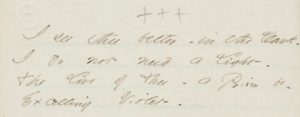 + + +
I see thee better - in the Dark -
I do not need a Light -
The Love of Thee - a Prism be -
Excelling Violet -